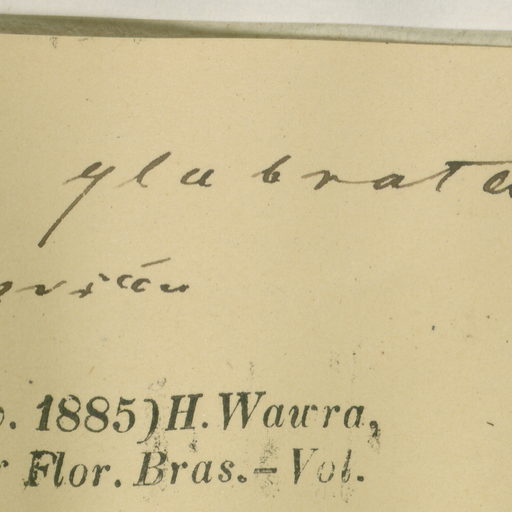 glabrata
1885) H. Wawra,
Flor. Bras. – Vol.